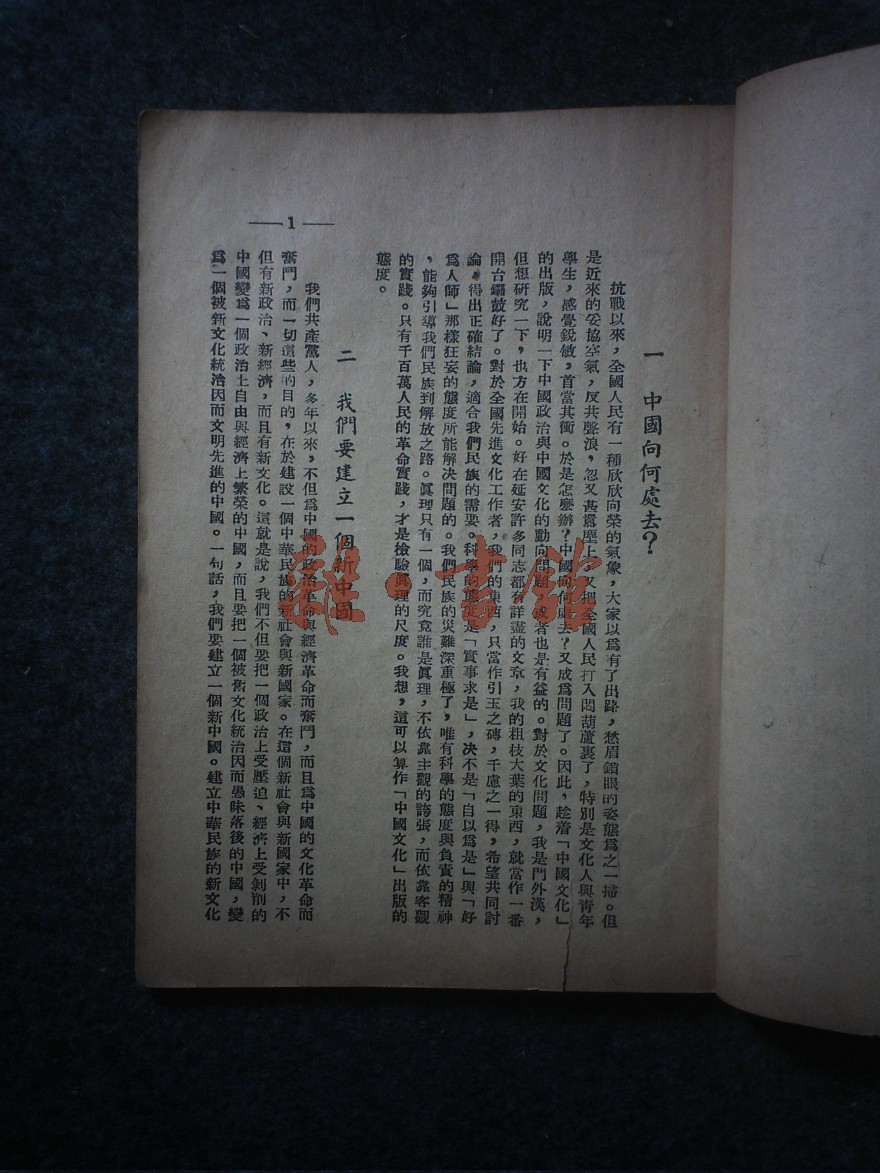 一　中國向何處去？
抗戰以來，全國人民有一種欣欣向榮的氣象，大家以爲有了出路，愁眉鎖眼的姿態爲之一掃。但
是近來的妥協空氣，反共聲浪，忽又甚囂塵上，又把全國人民打入悶葫蘆裏了，特別是文化人與青年
學生，感覺銳敏，首當其衝。於是怎麼辦？中國向何處去？又成爲問題了。因此，趁着「中國文化」
的出版，說明一下中國政治與中國文化的動向問題，或者也是有益的。對於文化問題，我是門外漢，
但想研究一下，也方在開始。好在延安許多同志都有詳盡的文章，我的粗枝大葉的東西，就當作一番
開台鑼鼓好了。對於全國先進文化工作者，我們的東西，只當作引玉之磚，千慮之一得，希望共同討
論，得出正確結論，適合我們民族的需要。科學的態度是「實事求是」，決不是「自以爲是」與「好
爲人師」那樣狂妄的態度所能解決問題的。我們民族的災難深重極了，唯有科學的態度與負責的精神
，能夠引導我們民族到解放之路。眞理只有一個，而究竟誰是眞理，不依靠主觀的誇張，而依靠客觀
的實踐。只有千百萬人民的革命實踐，才是檢驗眞理的尺度。我想，這可以算作「中國文化」出版的
態度。
二　我們要建立一個新中國
我們共產黨人，多年以來，不但爲中國的政治革命與經濟革命而奮鬥，而且爲中國的文化革命而
奮鬥，而一切這些的目的，在於建設一個中華民族的新社會與新國家。在這個新社會與新國家中，不
但有新政治、新經濟，而且有新文化。這就是說，我們不但要把一個政治上受壓迫、經濟上受剝削的
中國變爲一個政治上自由與經濟上繁榮的中國，而且要把一個被舊文化統治因而愚昧落後的中國，變
爲一個被新文化統治因而文明先進的中國。一句話，我們要建立一個新中國。建立中華民族的新文化
— 1 —
雜·書館